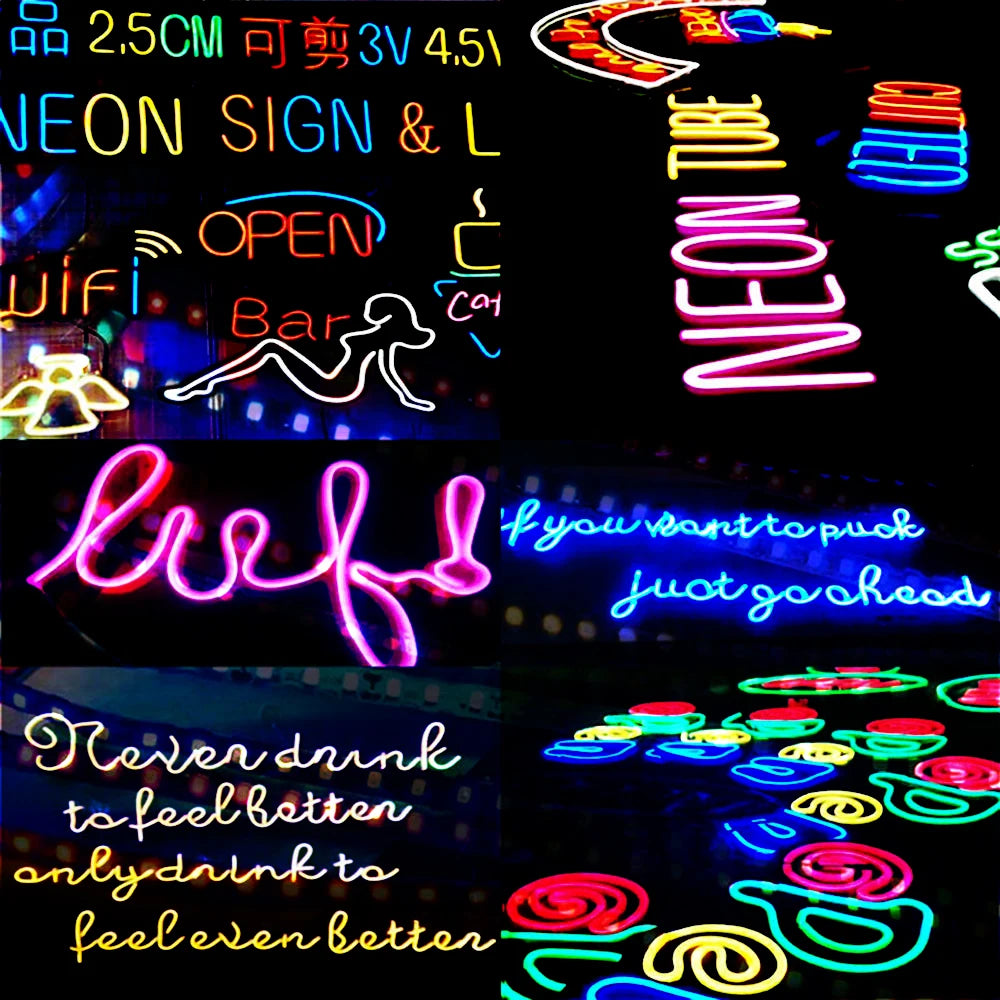 品 2.5CM 可剪 3V 4.5V
NEON SIGN & L
OPEN
WiFi
Bar
Caf
NEON TUBE
luf!
f you want to puck
just go ahead
Never drink
to feel better
only drink to
feel even better